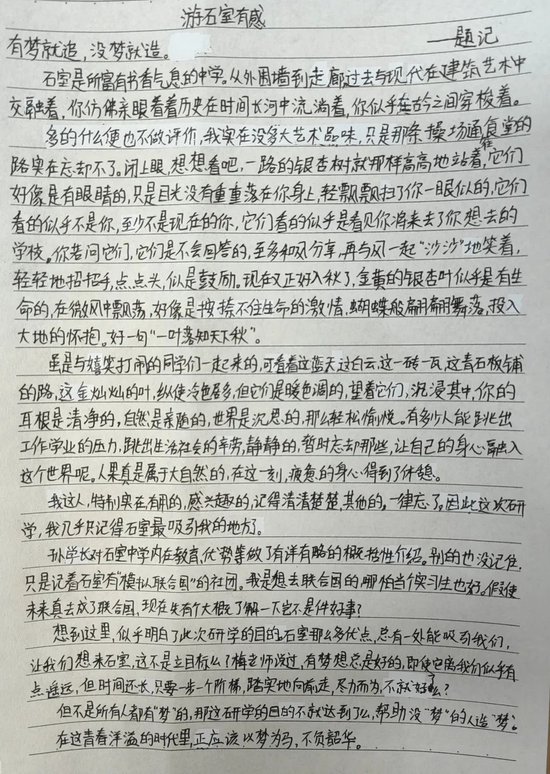 游石室有感
有梦就追，没梦就造。
——题记
石室是所富有书香气息的中学。从外围墙到走廊过去与现代在建筑艺术中
交融着，你仿佛亲眼看着历史在时间长河中流淌着，你似乎在古今之间穿梭着。
多的什么便也不做评价，我实在没多大艺术品味，只是那条操场通食堂的
路实在忘却不了。闭上眼，想想看吧，一路的银杏树就那样高高地站着，它们
好像是有眼睛的，只是目光没有重重落在你身上，轻飘飘扫了你一眼似的，它们
看的似乎不是你，至少不是现在的你，它们看的似乎是看见你将来去了你想去的
学校。你若问它们，它们是不会回答的，至多和风分享，再与风一起“沙沙”地笑着，
轻轻地招招手，点点头，似是鼓励。现在又正好入秋了，金黄的银杏叶似乎是有生
命的，在微风中飘荡，好像是按捺不住生命的激情，蝴蝶般翩翩舞落，投入
大地的怀抱。好一句“一叶落知天下秋”。
虽是与嬉笑打闹的同学们一起来的，可看着这蓝天这白云，这一砖一瓦，这青石板铺
的路，这金灿灿的叶，纵使冷色居多，但它们是暖色调的，望着它们，沉浸其中，你的
耳根是清净的，自然是亲随的，世界是沉思的，那么轻松愉悦。有多少人能跳出
工作学业的压力，跳出生活社会的辛劳，静静的，暂时忘却那些，让自己的身心融入
这个世界呢。人果真是属于大自然的，在这一刻，疲惫的身心得到了休憩。
我这人，特别实在有用的，感兴趣的，记得清清楚楚，其他的，一律忘了。因此这次研
学，我几乎只记得石室最吸引我的地方了。
孙学长对石室中学内在教育、优势等做了有详有略的概括性介绍。别的也没记住，
只是记着石室有“模拟联合国”的社团。我是想去联合国的，哪怕当个实习生也好。假使
未来真去成了联合国，现在先有个大概了解一下岂不是件好事？
想到这里，似乎明白了此次研学的目的，石室那么多优点，总有一处能吸引我们，
让我们想来石室，这不是立目标么？梅老师说过，有梦想总是好的，即使它离我们似乎有
点遥远，但时间还长，只要一步一个阶梯，踏实地向前走，尽力而为，不就好了么？
但不是所有人都有“梦”的，那这研学的目的不就达到了么，帮助没“梦”的人造“梦”。
在这青春洋溢的时代里，正应该以梦为马，不负韶华。